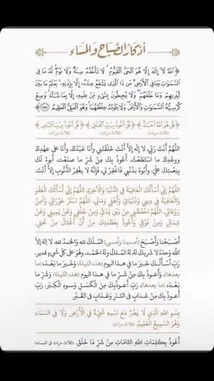 أذكار الصباح والمساء
﴿اللَّهُ لَا إِلَٰهَ إِلَّا هُوَ الْحَيُّ الْقَيُّومُ ۚ لَا تَأْخُذُهُ سِنَةٌ وَلَا نَوْمٌ ۚ لَهُ مَا فِي
السَّمَاوَاتِ وَمَا فِي الْأَرْضِ ۗ مَنْ ذَا الَّذِي يَشْفَعُ عِنْدَهُ إِلَّا بِإِذْنِهِ ۚ يَعْلَمُ مَا بَيْنَ
أَيْدِيهِمْ وَمَا خَلْفَهُمْ ۖ وَلَا يُحِيطُونَ بِشَيْءٍ مِنْ عِلْمِهِ إِلَّا بِمَا شَاءَ ۚ وَسِعَ
كُرْسِيُّهُ السَّمَاوَاتِ وَالْأَرْضَ ۖ وَلَا يَئُودُهُ حِفْظُهُمَا ۚ وَهُوَ الْعَلِيُّ الْعَظِيمُ﴾
﴿قُلْ هُوَ اللَّهُ أَحَدٌ﴾ ﴿قُلْ أَعُوذُ بِرَبِّ الْفَلَقِ﴾ ﴿قُلْ أَعُوذُ بِرَبِّ النَّاسِ﴾
اللَّهُمَّ أَنْتَ رَبِّي لَا إِلَهَ إِلَّا أَنْتَ خَلَقْتَنِي وَأَنَا عَبْدُكَ وَأَنَا عَلَى عَهْدِكَ
وَوَعْدِكَ مَا اسْتَطَعْتُ، أَعُوذُ بِكَ مِنْ شَرِّ مَا صَنَعْتُ أَبُوءُ لَكَ
بِنِعْمَتِكَ عَلَيَّ، وَأَبُوءُ بِذَنْبِي فَاغْفِرْ لِي، فَإِنَّهُ لَا يَغْفِرُ الذُّنُوبَ إِلَّا أَنْتَ
اللَّهُمَّ إِنِّي أَسْأَلُكَ الْعَافِيَةَ فِي الدُّنْيَا وَالْآخِرَةِ، اللَّهُمَّ إِنِّي أَسْأَلُكَ الْعَفْوَ
وَالْعَافِيَةَ فِي دِينِي وَدُنْيَايَ وَأَهْلِي وَمَالِي، اللَّهُمَّ اسْتُرْ عَوْرَاتِي وَآمِنْ
رَوْعَاتِي، اللَّهُمَّ احْفَظْنِي مِنْ بَيْنِ يَدَيَّ وَمِنْ خَلْفِي وَعَنْ يَمِينِي وَعَنْ
شِمَالِي وَمِنْ فَوْقِي، وَأَعُوذُ بِعَظَمَتِكَ مِنْ أَنْ أُغْتَالَ مِنْ تَحْتِي
أَصْبَحْنَا وَأَصْبَحَ (أمسينا وأمسى) الْمُلْكُ لِلَّهِ وَالْحَمْدُ لِلَّهِ، لَا إِلَهَ إِلَّا
اللَّهُ وَحْدَهُ لَا شَرِيكَ لَهُ، لَهُ الْمُلْكُ وَلَهُ الْحَمْدُ، وَهُوَ عَلَى كُلِّ شَيْءٍ قَدِيرٌ،
رَبِّ أَسْأَلُكَ خَيْرَ مَا فِي هَذَا الْيَوْمِ (هذه الليلة) وَخَيْرَ مَا بَعْدَهُ
(بعدها)، وَأَعُوذُ بِكَ مِنْ شَرِّ مَا فِي هَذَا الْيَوْمِ (هذه الليلة) وَشَرِّ مَا
بَعْدَهُ (بعدها)، رَبِّ أَعُوذُ بِكَ مِنَ الْكَسَلِ وَسُوءِ الْكِبَرِ، رَبِّ
أَعُوذُ بِكَ مِنْ عَذَابٍ فِي النَّارِ وَعَذَابٍ فِي الْقَبْرِ
بِسْمِ اللَّهِ الَّذِي لَا يَضُرُّ مَعَ اسْمِهِ شَيْءٌ فِي الْأَرْضِ وَلَا فِي السَّمَاءِ
وَهُوَ السَّمِيعُ الْعَلِيمُ
أَعُوذُ بِكَلِمَاتِ اللَّهِ التَّامَّاتِ مِنْ شَرِّ مَا خَلَقَ (ثلاث مرات في المساء)